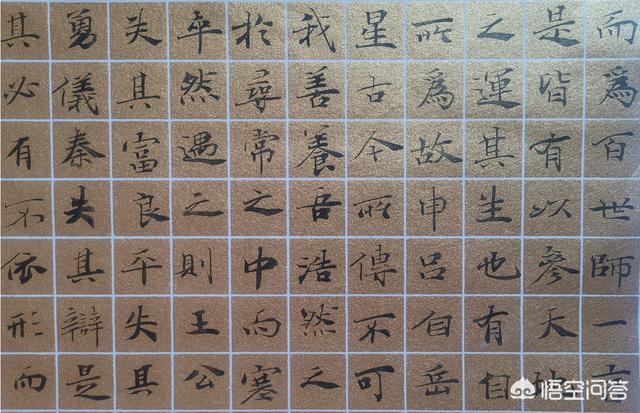 而為百世師一
是皆有以參天地
之運其生也有自
所為故申呂自岳
星古今所傳不可
我善養吾浩然之
於尋常之中而塞
卒然遇之則王公
失其富良平失其
勇儀秦失其辯是
其必有不依形而
悟空问答